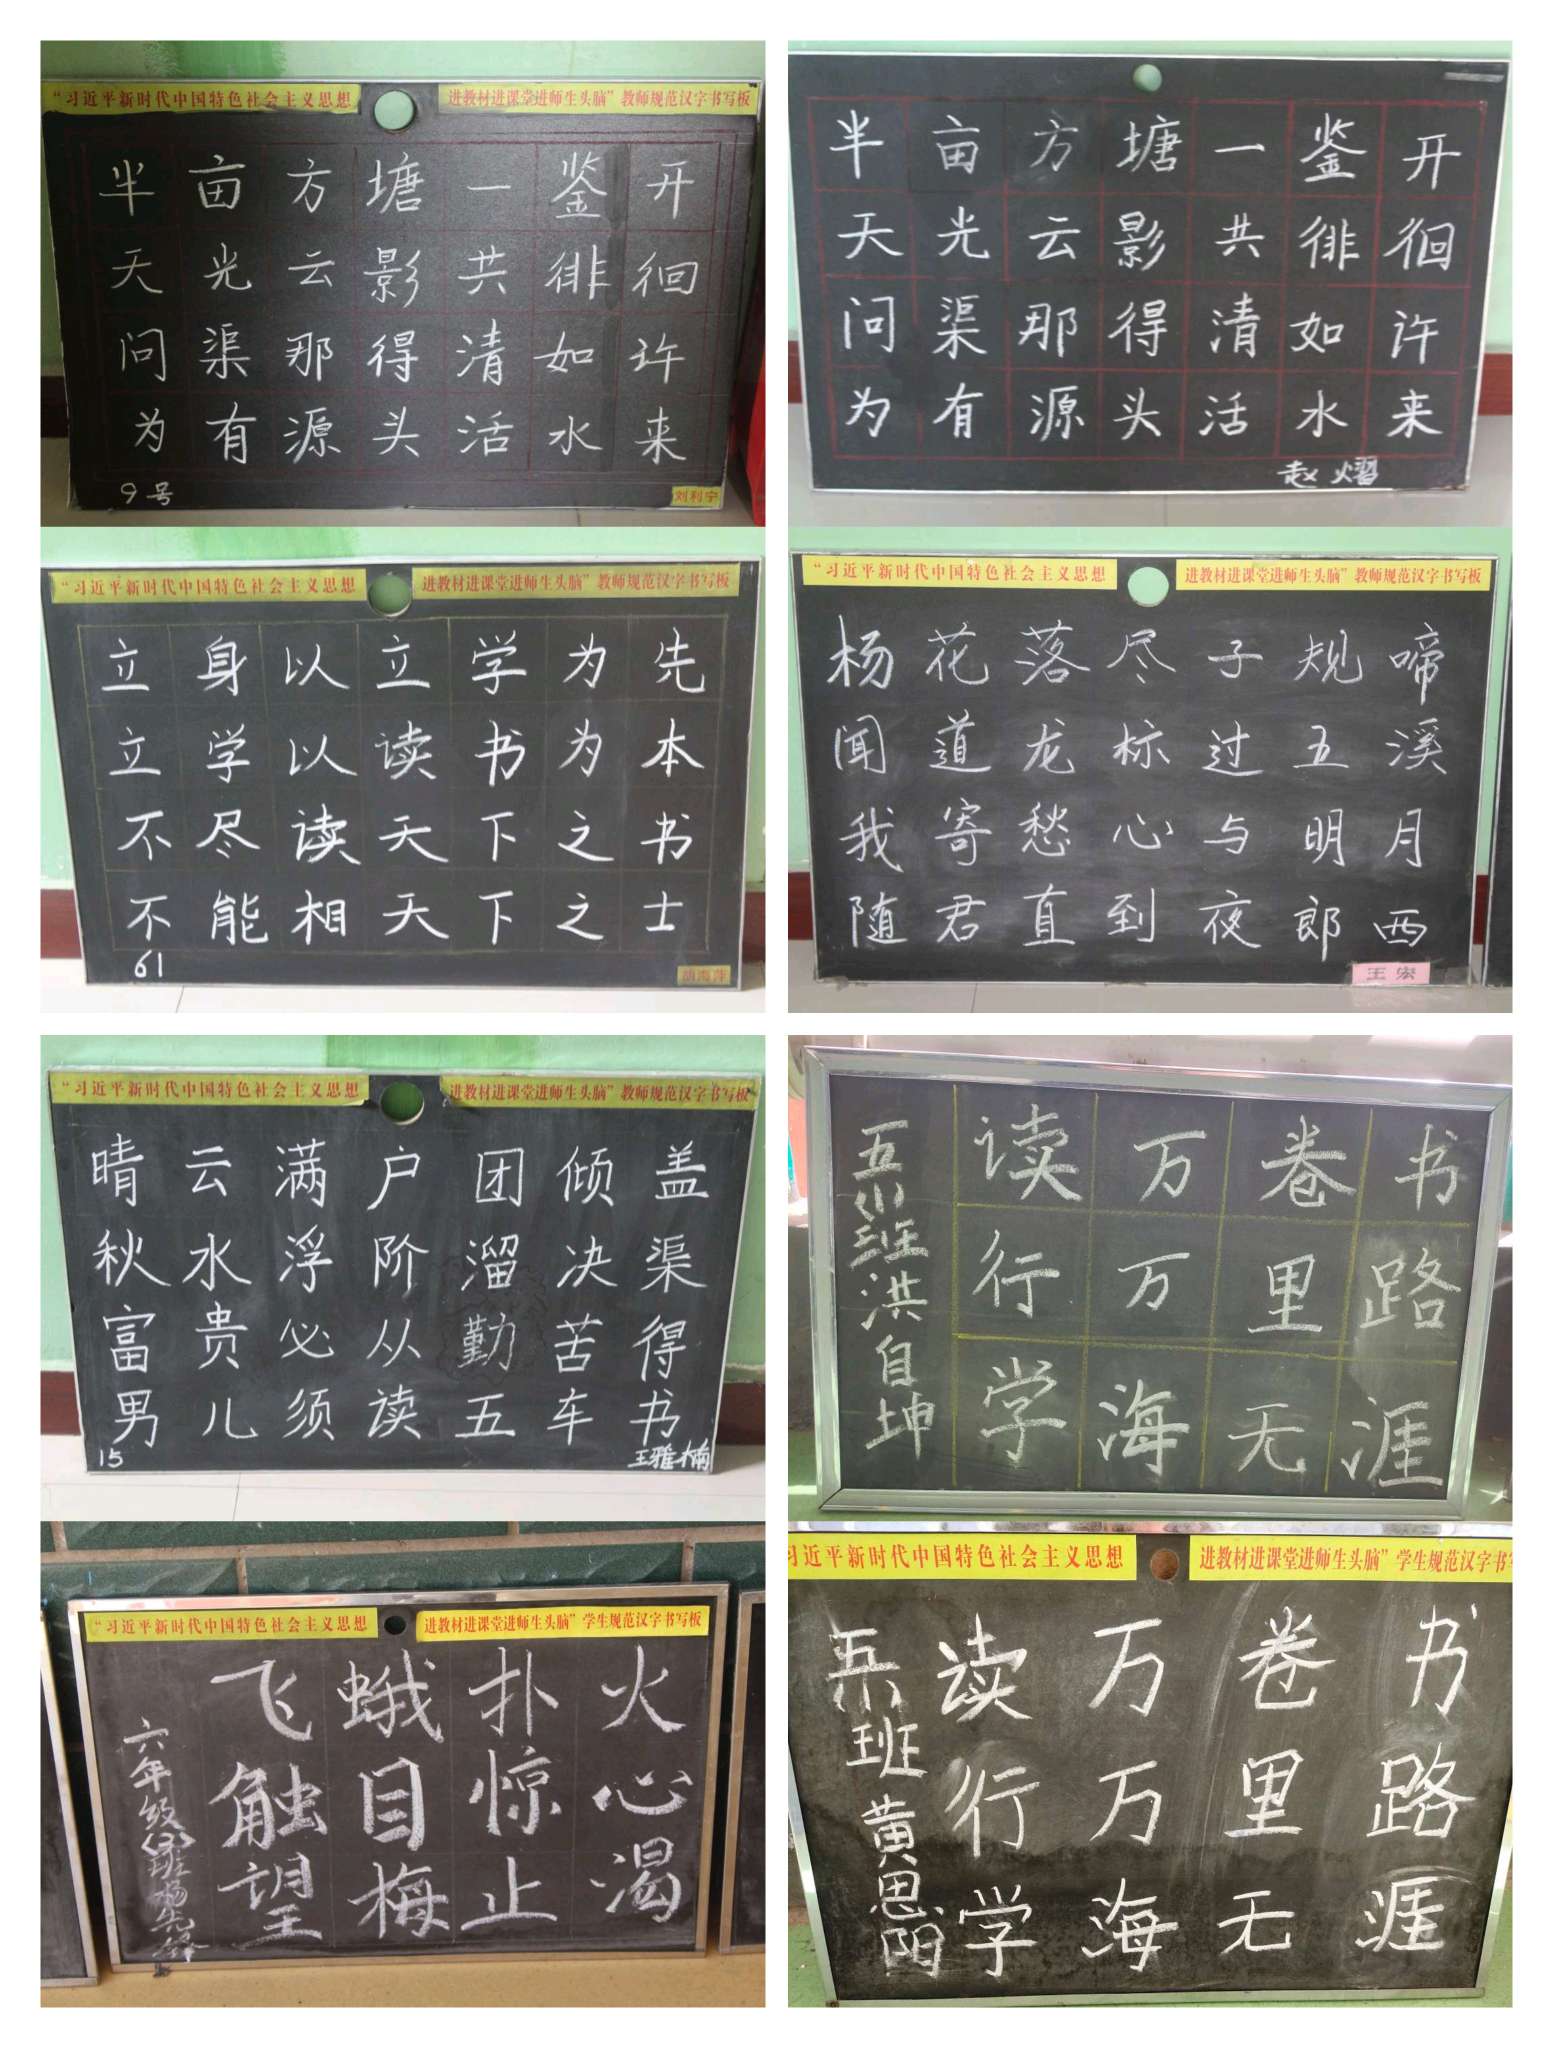 “习近平新时代中国特色社会主义思想
进教材进课堂进师生头脑”教师规范汉字书写板
半亩方塘一鉴开
天光云影共徘徊
问渠那得清如许
为有源头活水来
9号
刘利宁
半亩方塘一鉴开
天光云影共徘徊
问渠那得清如许
为有源头活水来
赵熠
“习近平新时代中国特色社会主义思想
进教材进课堂进师生头脑”教师规范汉字书写板
立身以立学为先
立学以读书为本
不尽读天下之书
不能相天下之士
61
“习近平新时代中国特色社会主义思想
进教材进课堂进师生头脑”教师规范汉字书写板
杨花落尽子规啼
闻道龙标过五溪
我寄愁心与明月
随君直到夜郎西
王宏
“习近平新时代中国特色社会主义思想
进教材进课堂进师生头脑”教师规范汉字书写板
晴云满户团倾盖
秋水浮阶溜决渠
富贵必从勤苦得
男儿须读五车书
15
王雅楠
读万卷书
行万里路
学海无涯
洪自坤
“习近平新时代中国特色社会主义思想
进教材进课堂进师生头脑”学生规范汉字书写板
飞蛾扑火
触目惊心
望梅止渴
六年级(3)班杨先锋
习近平新时代中国特色社会主义思想
进教材进课堂进师生头脑”学生规范汉字书写
读万卷书
行万里路
学海无涯
班黄思阳